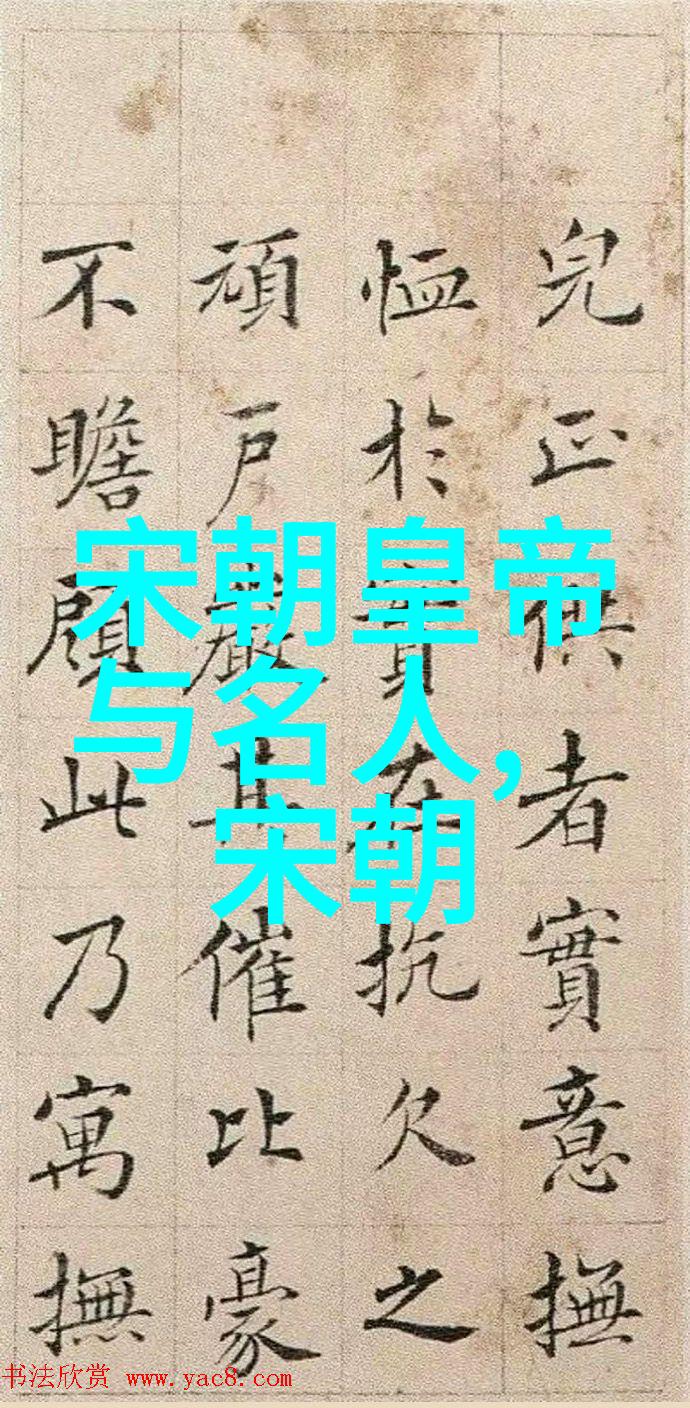 完正供者實意撫
恤於實在抗欠之
頑戶嚴其催比豪
不瞻顧此乃寓撫
宋朝皇帝
与名人,
宋朝
书法欣赏 www.yac8.com